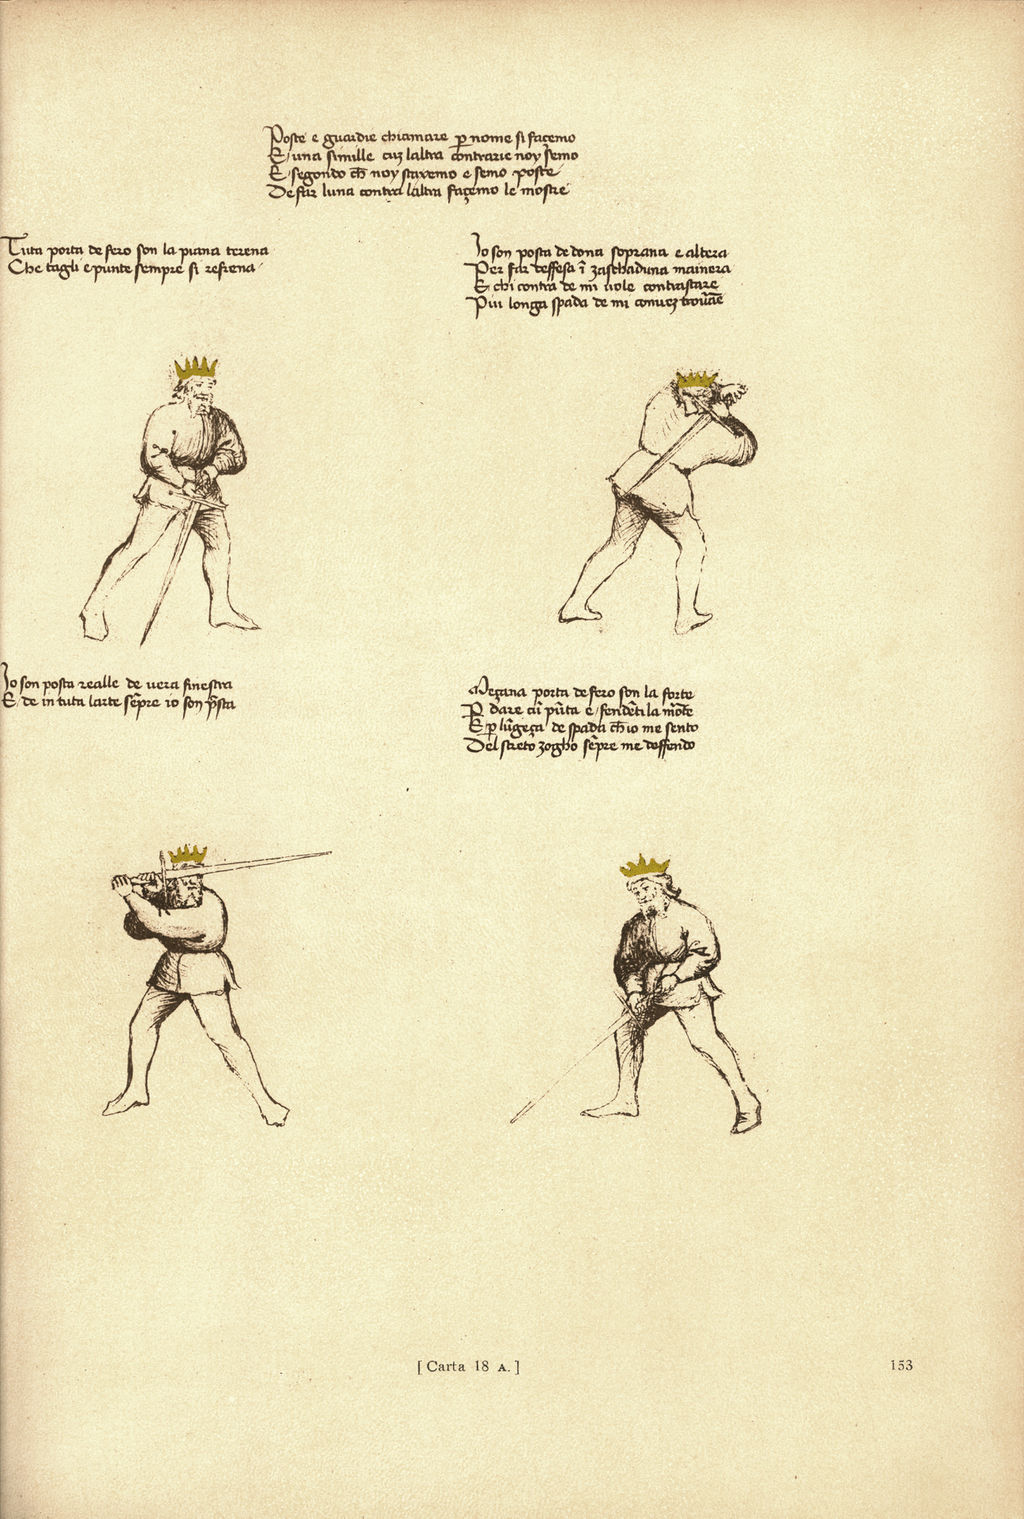 Poste e guardie chiamare p nome si façemo
E una simille cuz laltra contrarie noy semo
E segondo ch noy staxemo e semo poste
De far luna contra laltra façemo le mostre
Tuta porta de fero son la piana terena
Che tagli e punte sempre si refrena
Io son posta de dona soprana e altera
Per far deffesa ī zaschaduna mainera
E chi contra de mi uole contrastare
Piu longa spada de mi conuez trouāe
Io son posta realle de uera finestra
E de in tuta larte sēpre io son p̄sta
Meçana porta de fero son la forte
P dare cū pūta e fendēti la mōte
E p lūgeça de spada ch̄io me sento
Del streto zogho sēpre me deffendo
[ Carta 18 A. ]
153